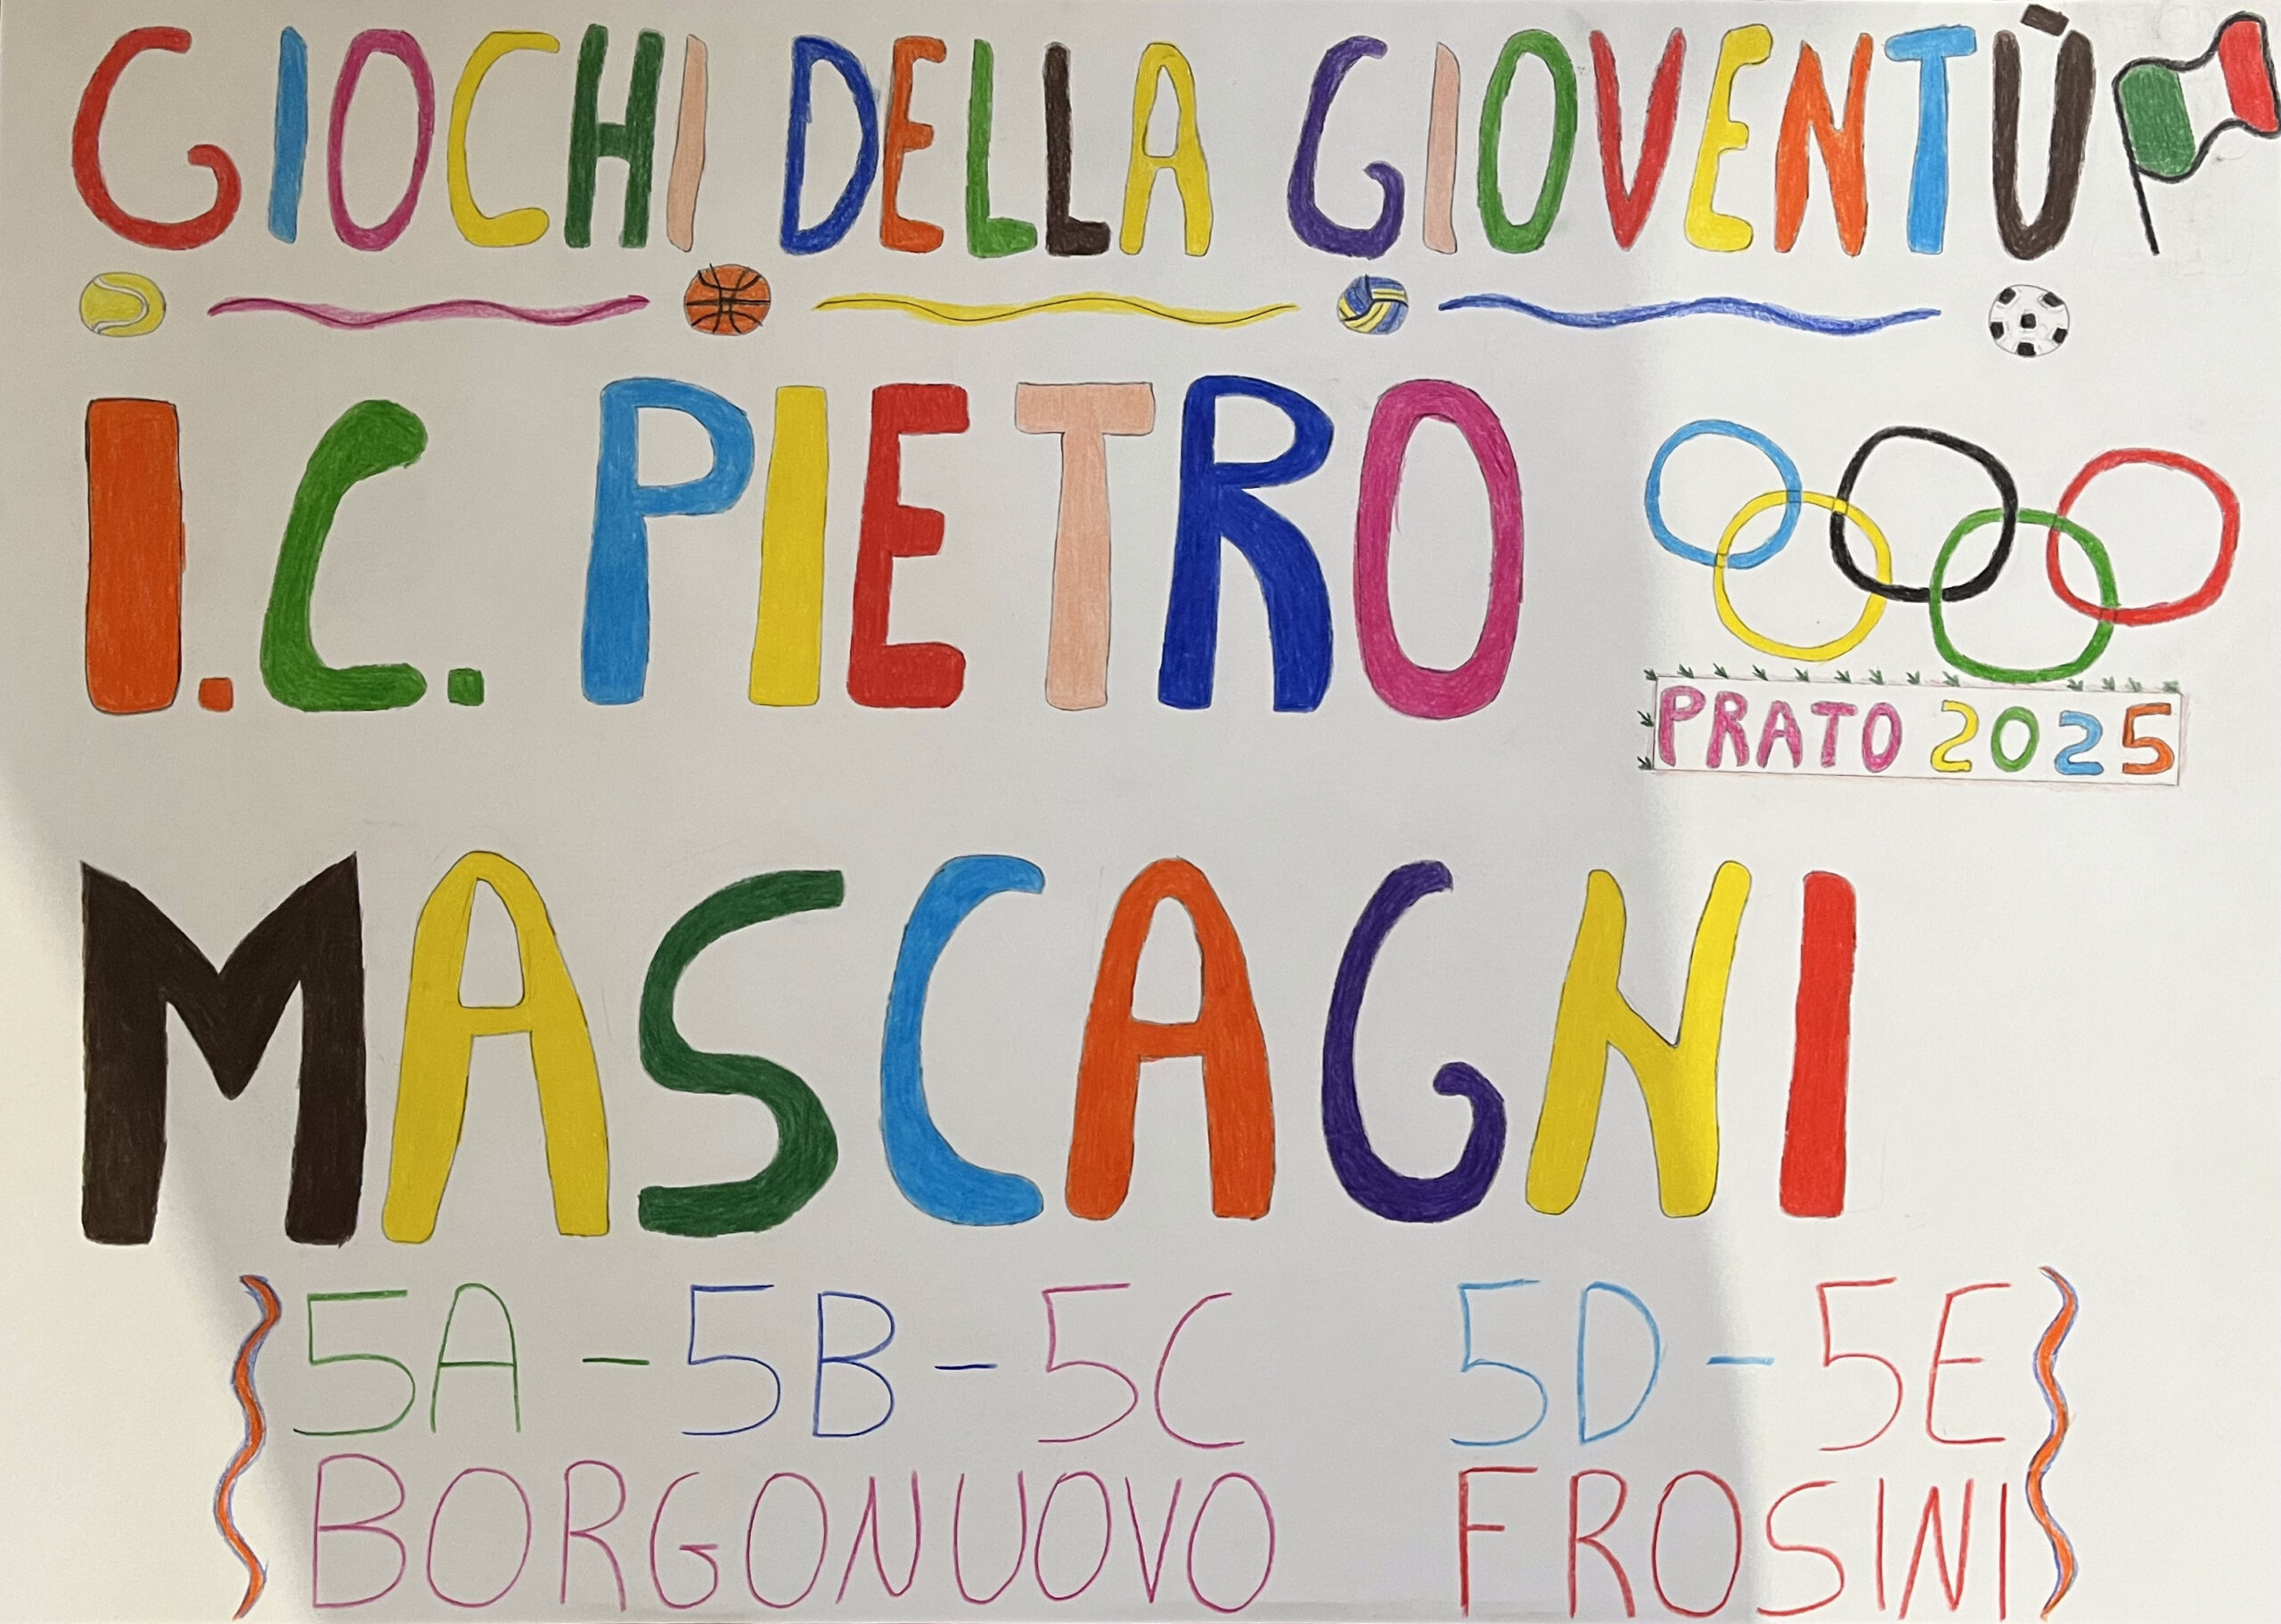 GIOCHI DELLA GIOVENTÙ
I.C. PIETRO
PRATO 2025
MASCAGNI
5A - 5B - 5C 5D - 5E
BORGONUOVO FROSINI